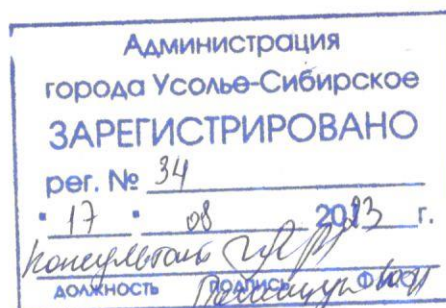 Администрация
города Усолье-Сибирское
ЗАРЕГИСТРИРОВАНО
рег. № 34
" 17 " 08 2023 г.
консультант
должность подпись Ф.И.О.